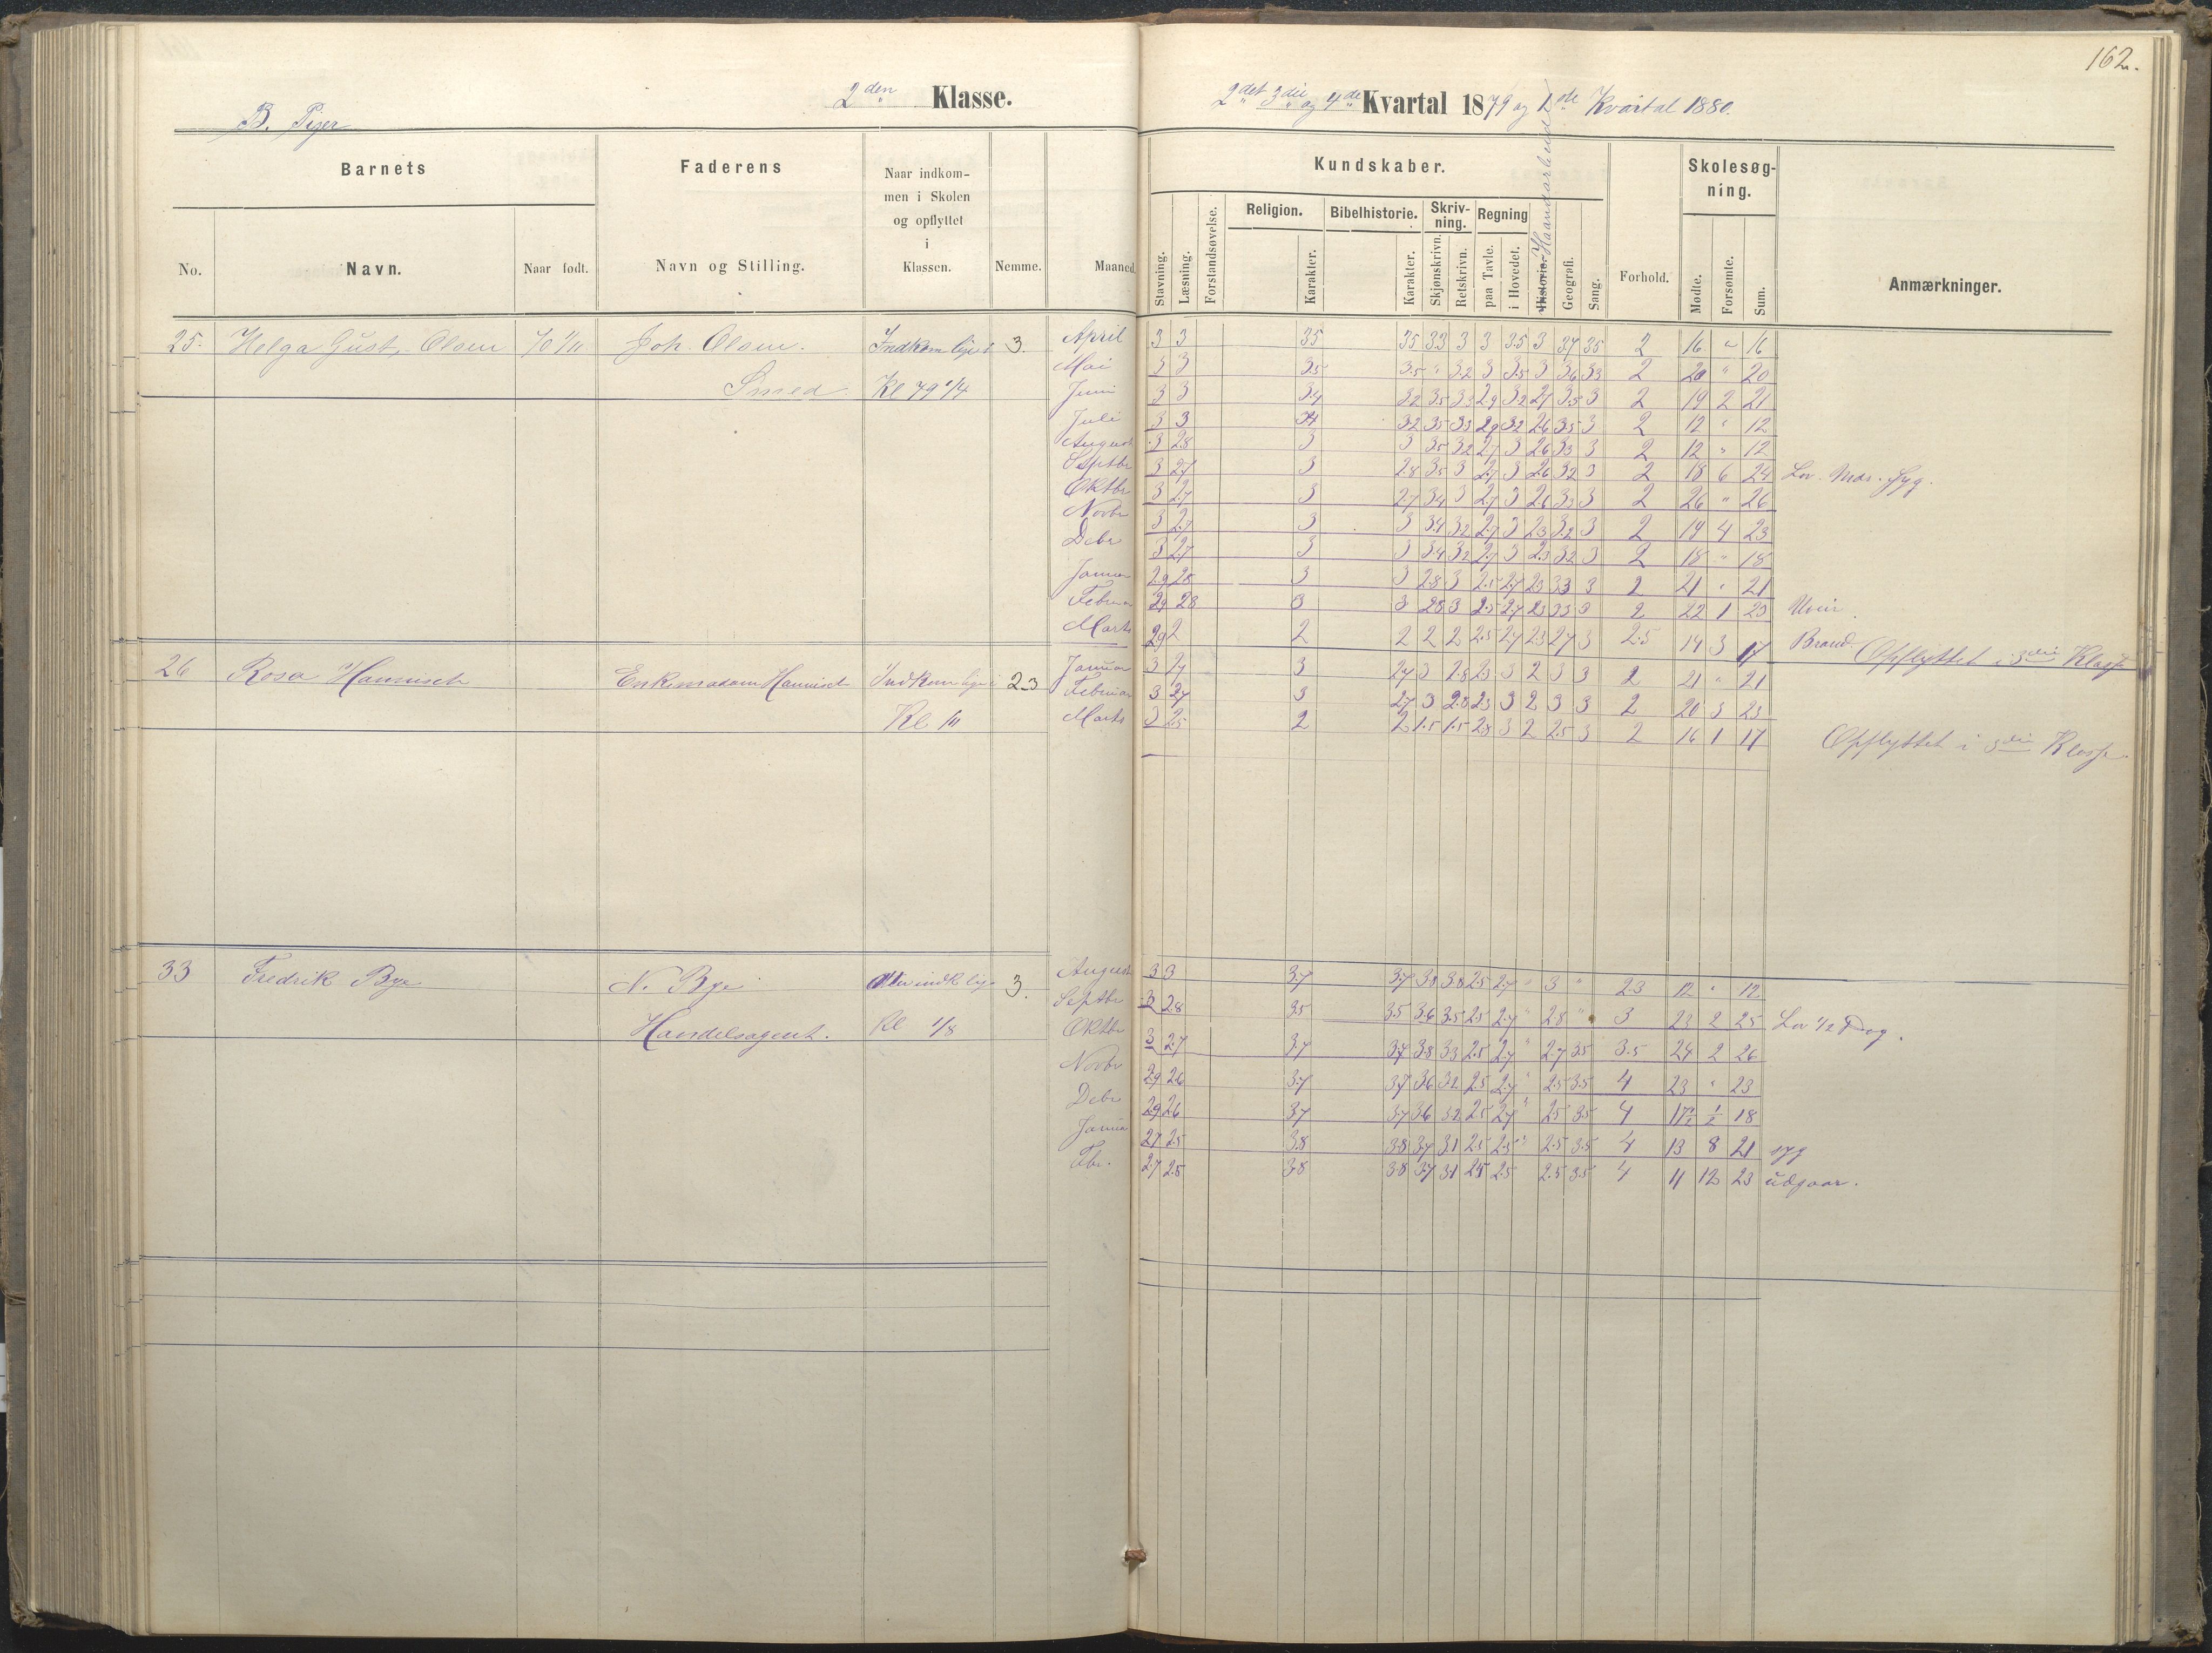 162.
B. Piger
2den Klasse.
2det 3die og 4de Kvartal 1879 og 1ste Kvartal 1880.
Barnets
Faderens
Naar indkom-
men i Skolen
og opflyttet
i
Klassen.
No.
Navn.
Naar født.
Navn og Stilling.
Nemme.
Maaned.
Kundskaber.
Skolesøg-
ning.
Stavning.
Læsning.
Forstandsøvelse.
Religion.
Karakter.
Bibelhistorie.
Karakter.
Skriv-
ning.
Skjønskrivn.
Retskrivn.
Regning
paa Tavle.
i Hovedet.
Historie. Haandarbeide
Geografi.
Sang.
Forhold.
Mødte.
Forsømte.
Sum.
Anmærkninger.
25. Helga Gust. Olsen 70 Joh. Olsen. 3.
Smed Kl 79 1/4
April 3 3 35 35 33 3 3 3.5 3 37 35 2 16 " 16
Mai 3 3 35 3.5 " 3.2 3 3.5 3 36 33 2 20 " 20
Juni 3 3 34 32 35 33 2.9 32 27 3.5 3 2 19 2 21
Juli 3 3 32 35 33 29 32 26 35 3 2 12 " 12
August 3 28 3 3 35 32 27 3 26 33 3 2 12 " 12
Septbr 3 27 3 28 35 3 27 3 26 32 3 2 18 6 24
Oktbr 3 27 3 27 34 3 27 3 26 33 3 2 26 " 26
Novbr 3 27 3 3 34 32 27 3 23 32 3 2 19 4 23
Debr 3 27 3 3 34 32 27 3 23 32 3 2 18 " 18
Januar 29 28 3 3 28 3 25 27 23 33 3 2 21 " 21
Februar 29 28 3 3 28 3 25 27 23 33 3 2 22 1 23
Marts 29 2 2 2 2 2 2.5 27 23 27 3 2.5 14 3 17 Brand. Opflyttet i 3die Klasse
26 Rosa Hannisch Enkemadam Hannisch 2-3
Kl
Januar 3 27 3 27 3 28 23 3 2 3 3 2 21 " 21
Februar 3 27 3 27 3 28 23 3 2 3 3 2 20 3 23
Marts 3 25 2 2 1.5 1.5 28 3 2 2.5 3 2 16 1 17
Opflyttet i 3die Klasse
33 Fredrik Bye N. Bye 3.
Handelsagent. Kl 1/8
August 3 3 37 37 38 38 25 27 " 3 " 23 12 " 12
Septbr 3 28 35 35 36 35 25 27 " 28 " 3 23 2 25 Lov 1/2 Dag.
Oktbr 3 27 37 37 38 33 25 27 " 27 35 3.5 24 2 26
Novbr 29 26 37 37 36 32 25 27 " 25 35 4 23 " 23
Debr 29 26 37 37 36 32 25 27 " 25 35 4 17½ ½ 18
Januar 27 25 38 38 37 31 25 25 " 25 35 4 13 8 21
Fbr. 27 25 38 38 37 31 25 25 25 35 4 11 12 23 udgaar.